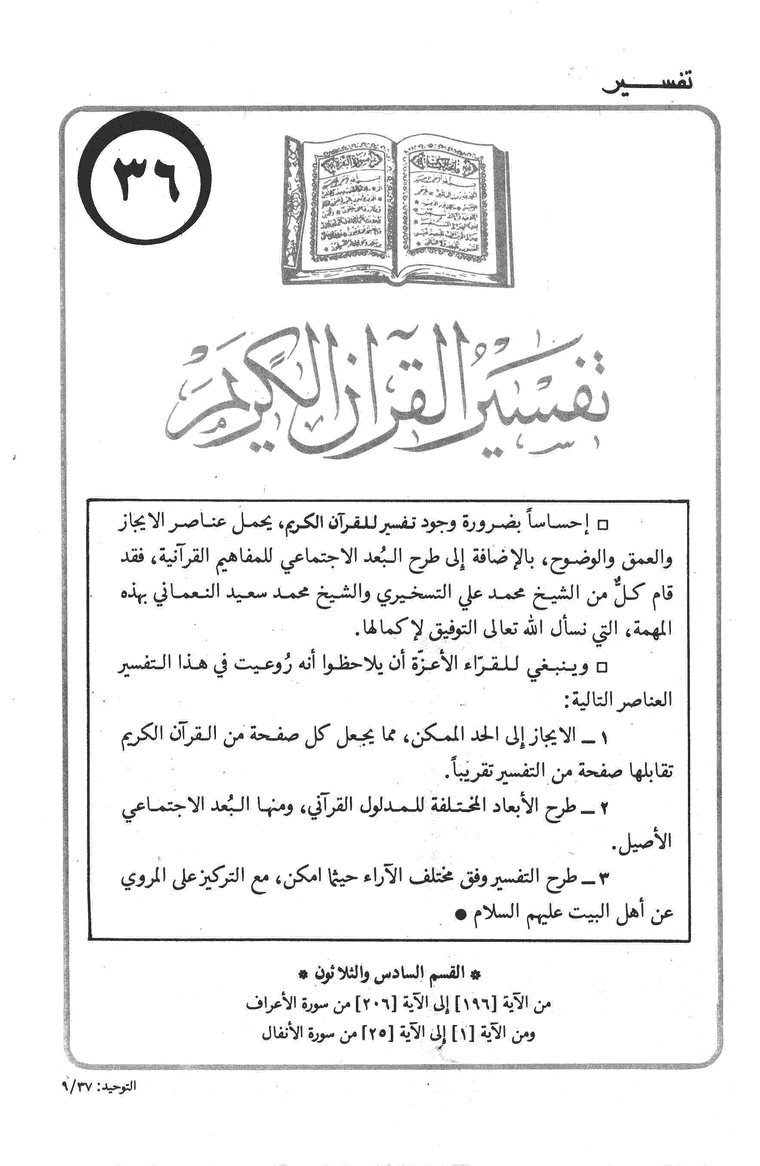 تفسير
٣٦
تفسير القرآن الكريم
□ إحساساً بضرورة وجود تفسير للقرآن الكريم، يحمل عناصر الايجاز
والعمق والوضوح، بالإضافة إلى طرح البُعد الاجتماعي للمفاهيم القرآنية، فقد
قام كلٌّ من الشيخ محمد علي التسخيري والشيخ محمد سعيد النعماني بهذه
المهمة، التي نسأل الله تعالى التوفيق لإكمالها.
□ وينبغي للقرّاء الأعزّة أن يلاحظوا أنه رُوعيت في هذا التفسير
العناصر التالية:
١ ــ الايجاز إلى الحد الممكن، مما يجعل كل صفحة من القرآن الكريم
تقابلها صفحة من التفسير تقريباً.
٢ ــ طرح الأبعاد المختلفة للمدلول القرآني، ومنها البُعد الاجتماعي
الأصيل.
٣ ــ طرح التفسير وفق مختلف الآراء حيثما امكن، مع التركيز على المروي
عن أهل البيت عليهم السلام ●
* القسم السادس والثلاثون *
من الآية [١٩٦] إلى الآية [٢٠٦] من سورة الأعراف
ومن الآية [١] إلى الآية [٢٥] من سورة الأنفال
التوحيد: ٩/٣٧